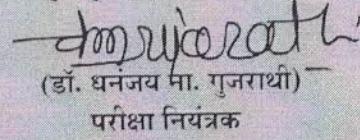 (डॉ. धनंजय मा. गुजराथी)
परीक्षा नियंत्रक